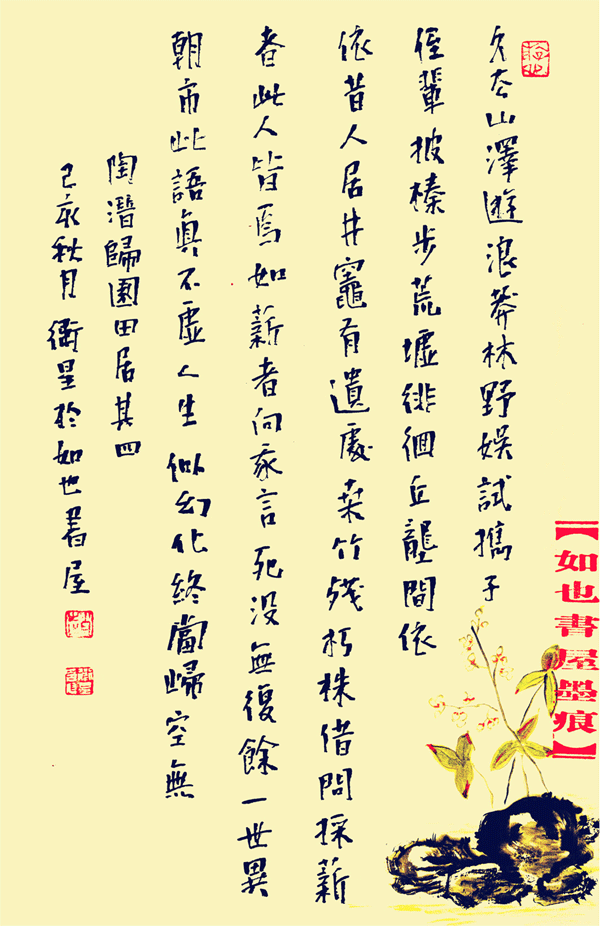 久去山澤遊浪莽林野娛試攜子
侄輩披榛步荒墟徘徊丘壟間依
依昔人居井竈有遺處桑竹殘朽株借問採薪
者此人皆焉如薪者向我言死没無復餘一世異
朝市此語真不虛人生似幻化終當歸空無
陶潛歸園田居其四
己亥秋月衛星於如也書屋
【如也書屋墨痕】